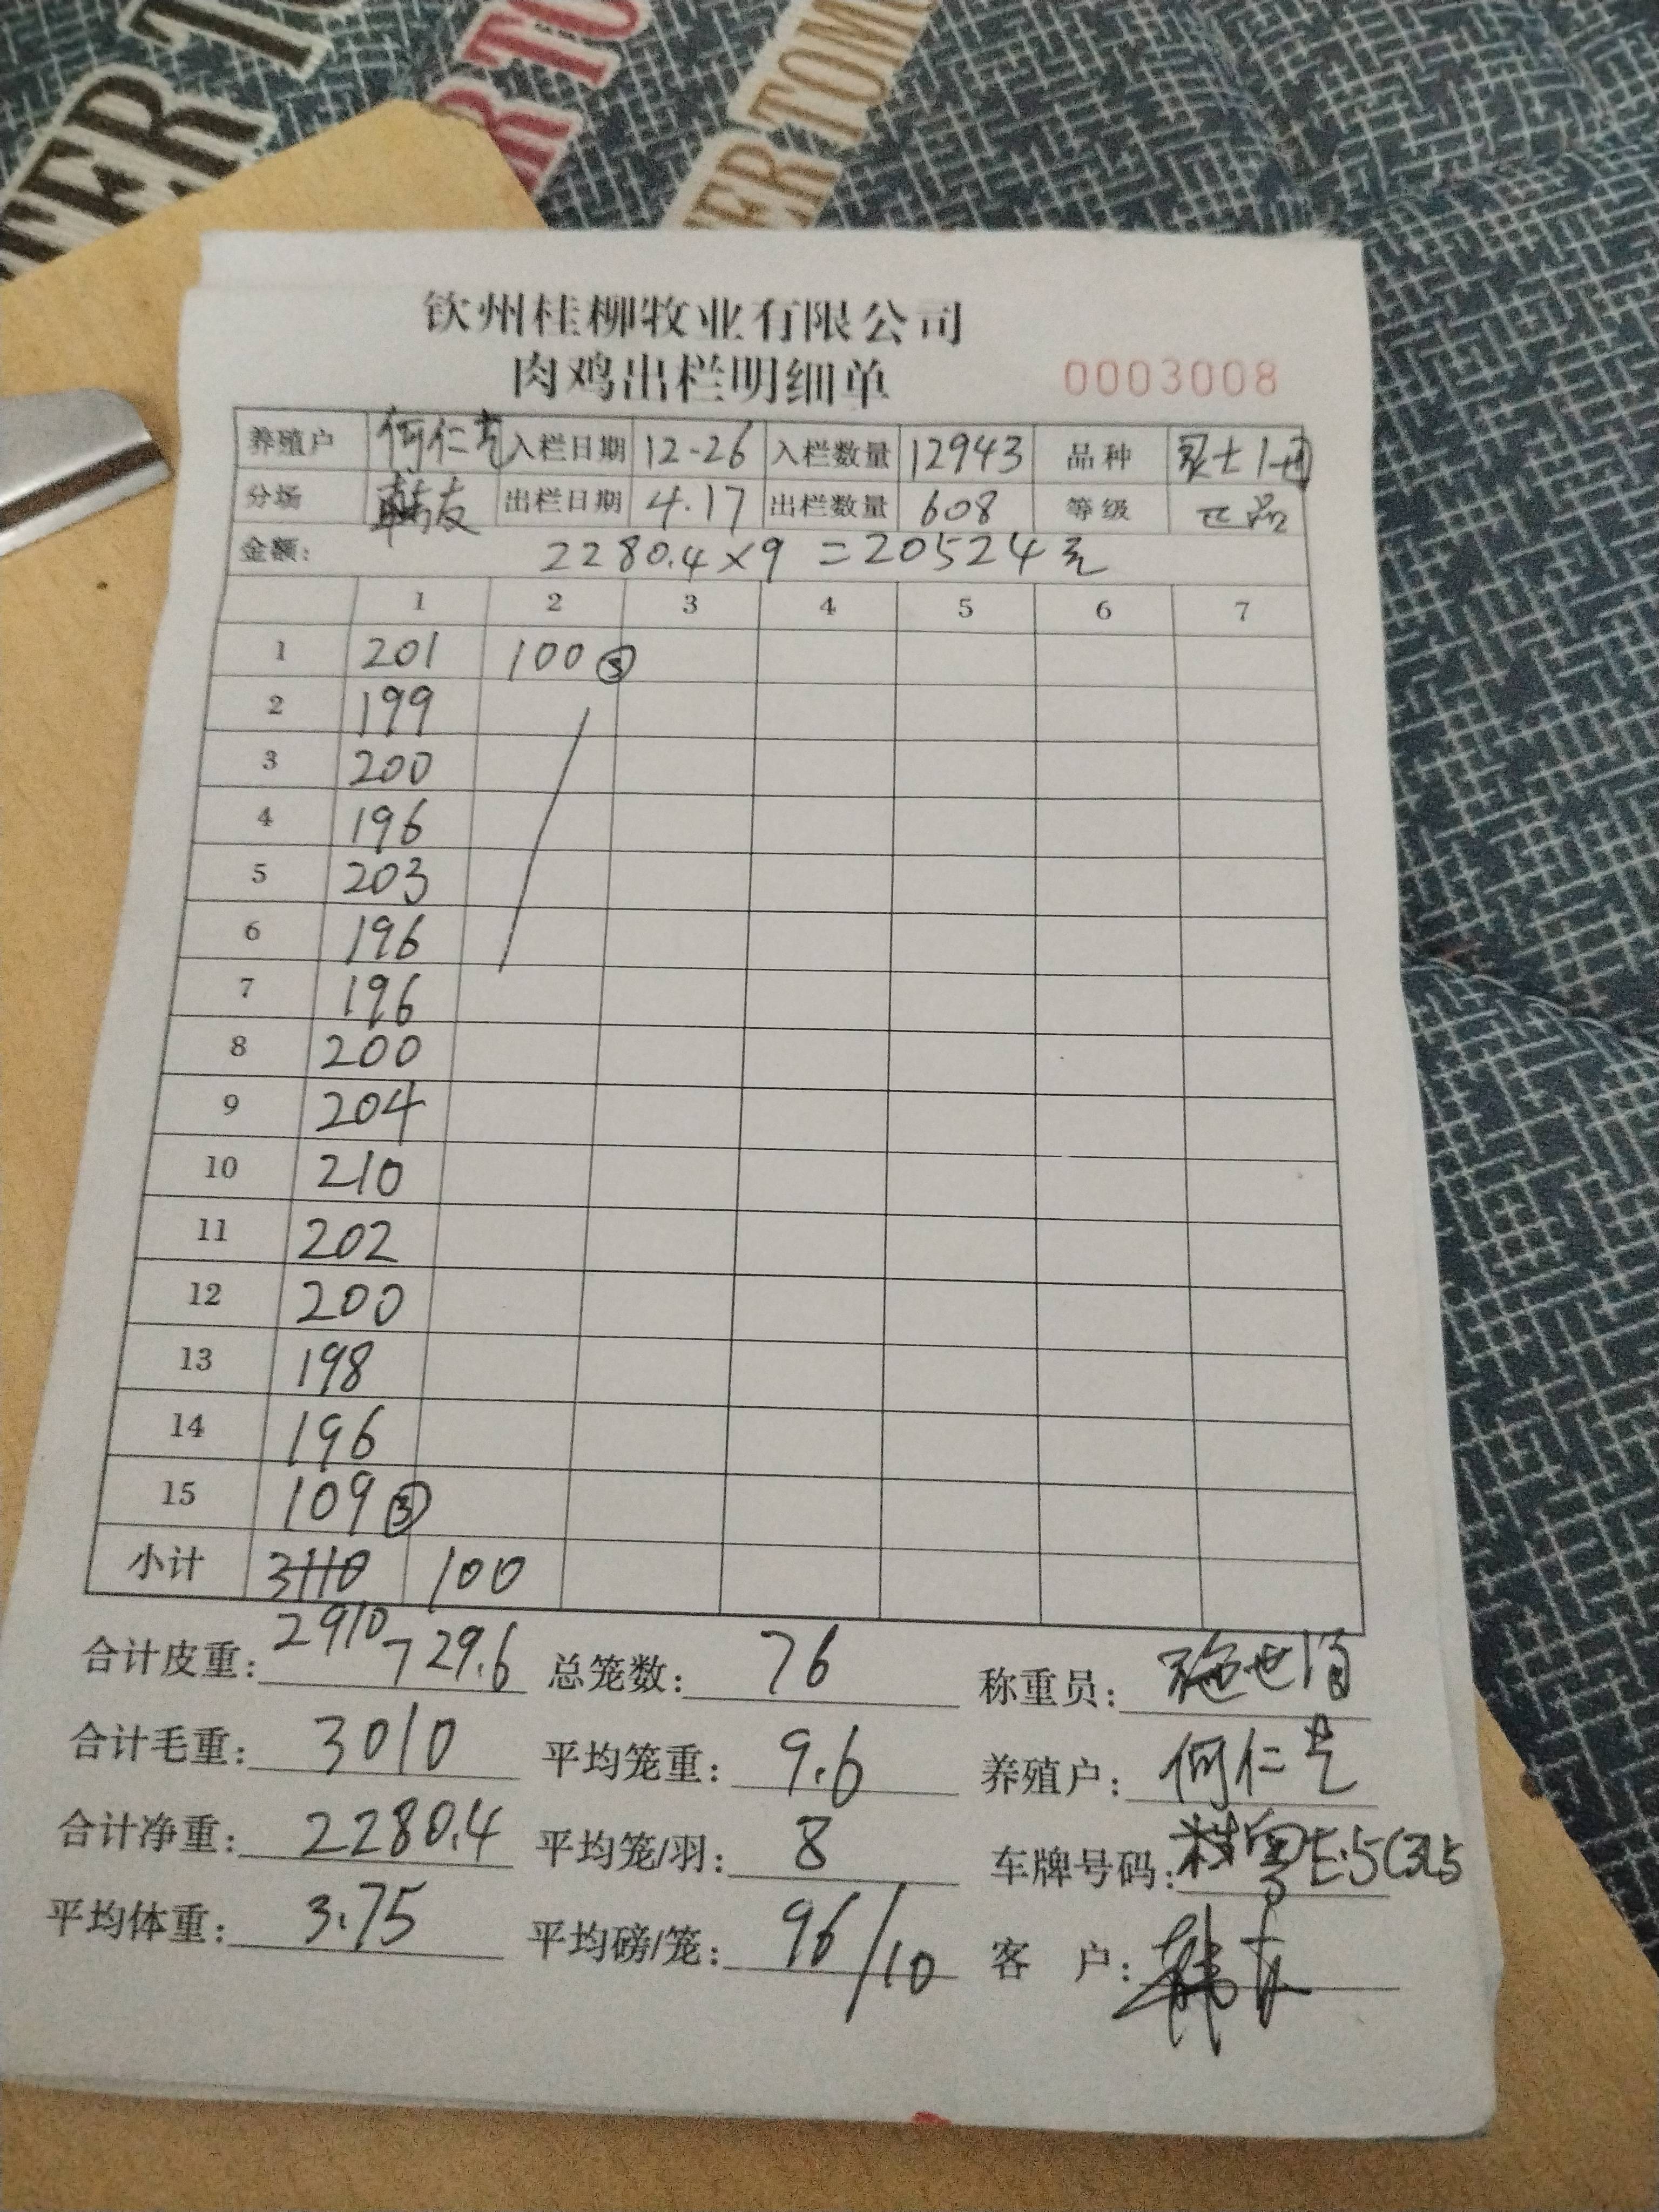 TER TO
ER TO
ER TOM
钦州桂柳牧业有限公司
肉鸡出栏明细单 0003008
养殖户 何仁 入栏日期 12-26 入栏数量 12943 品种
分场 韩友 出栏日期 4.17 出栏数量 608 等级
金额: 2280.4×9=20524元
1 2 3 4 5 6 7
1 201 100③
2 199
3 200
4 196
5 203
6 196
7 196
8 200
9 204
10 210
11 202
12 200
13 198
14 196
15 109③
小计 3110 100
2910
合计皮重: 729.6 总笼数: 76 称重员:
合计毛重: 3010 平均笼重: 9.6 养殖户: 何仁
合计净重: 2280.4 平均笼/羽: 8 车牌号码:
平均体重: 3.75 平均磅/笼: 96/10 客 户: 韩友